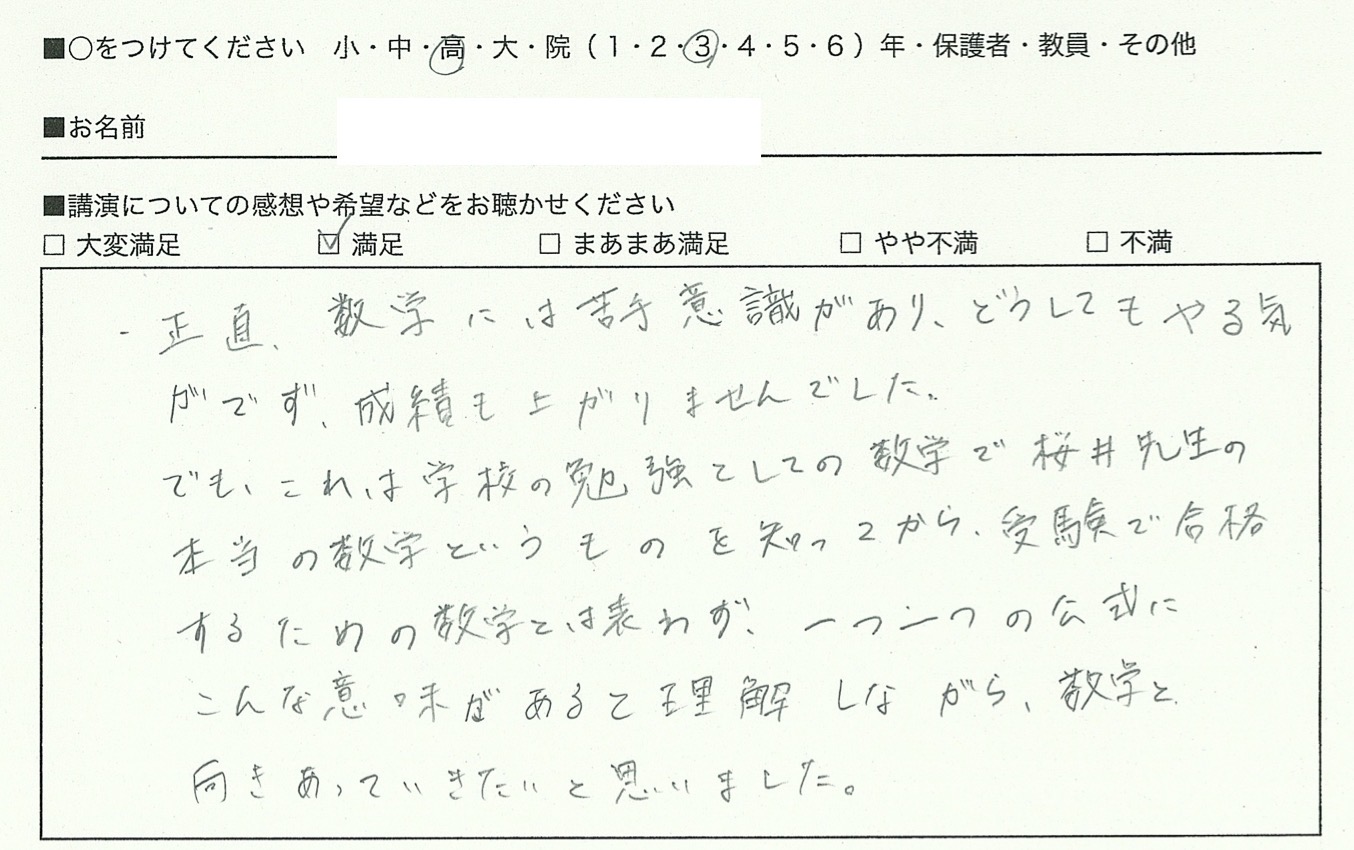 ■○をつけてください 小・中・高・大・院(1・2・3・4・5・6)年・保護者・教員・その他
■お名前
■講演についての感想や希望などをお聴かせください
□ 大変満足 ☑ 満足 □ まあまあ満足 □ やや不満 □ 不満
・正直、数学には苦手意識があり、どうしてもやる気
がでず、成績も上がりませんでした。
でも、これは学校の勉強としての数学で桜井先生の
本当の数学というものを知ってから、受験で合格
するための数学とは表わず、一つ一つの公式に
こんな意味があると理解しながら、数学と
向きあっていきたいと思いました。